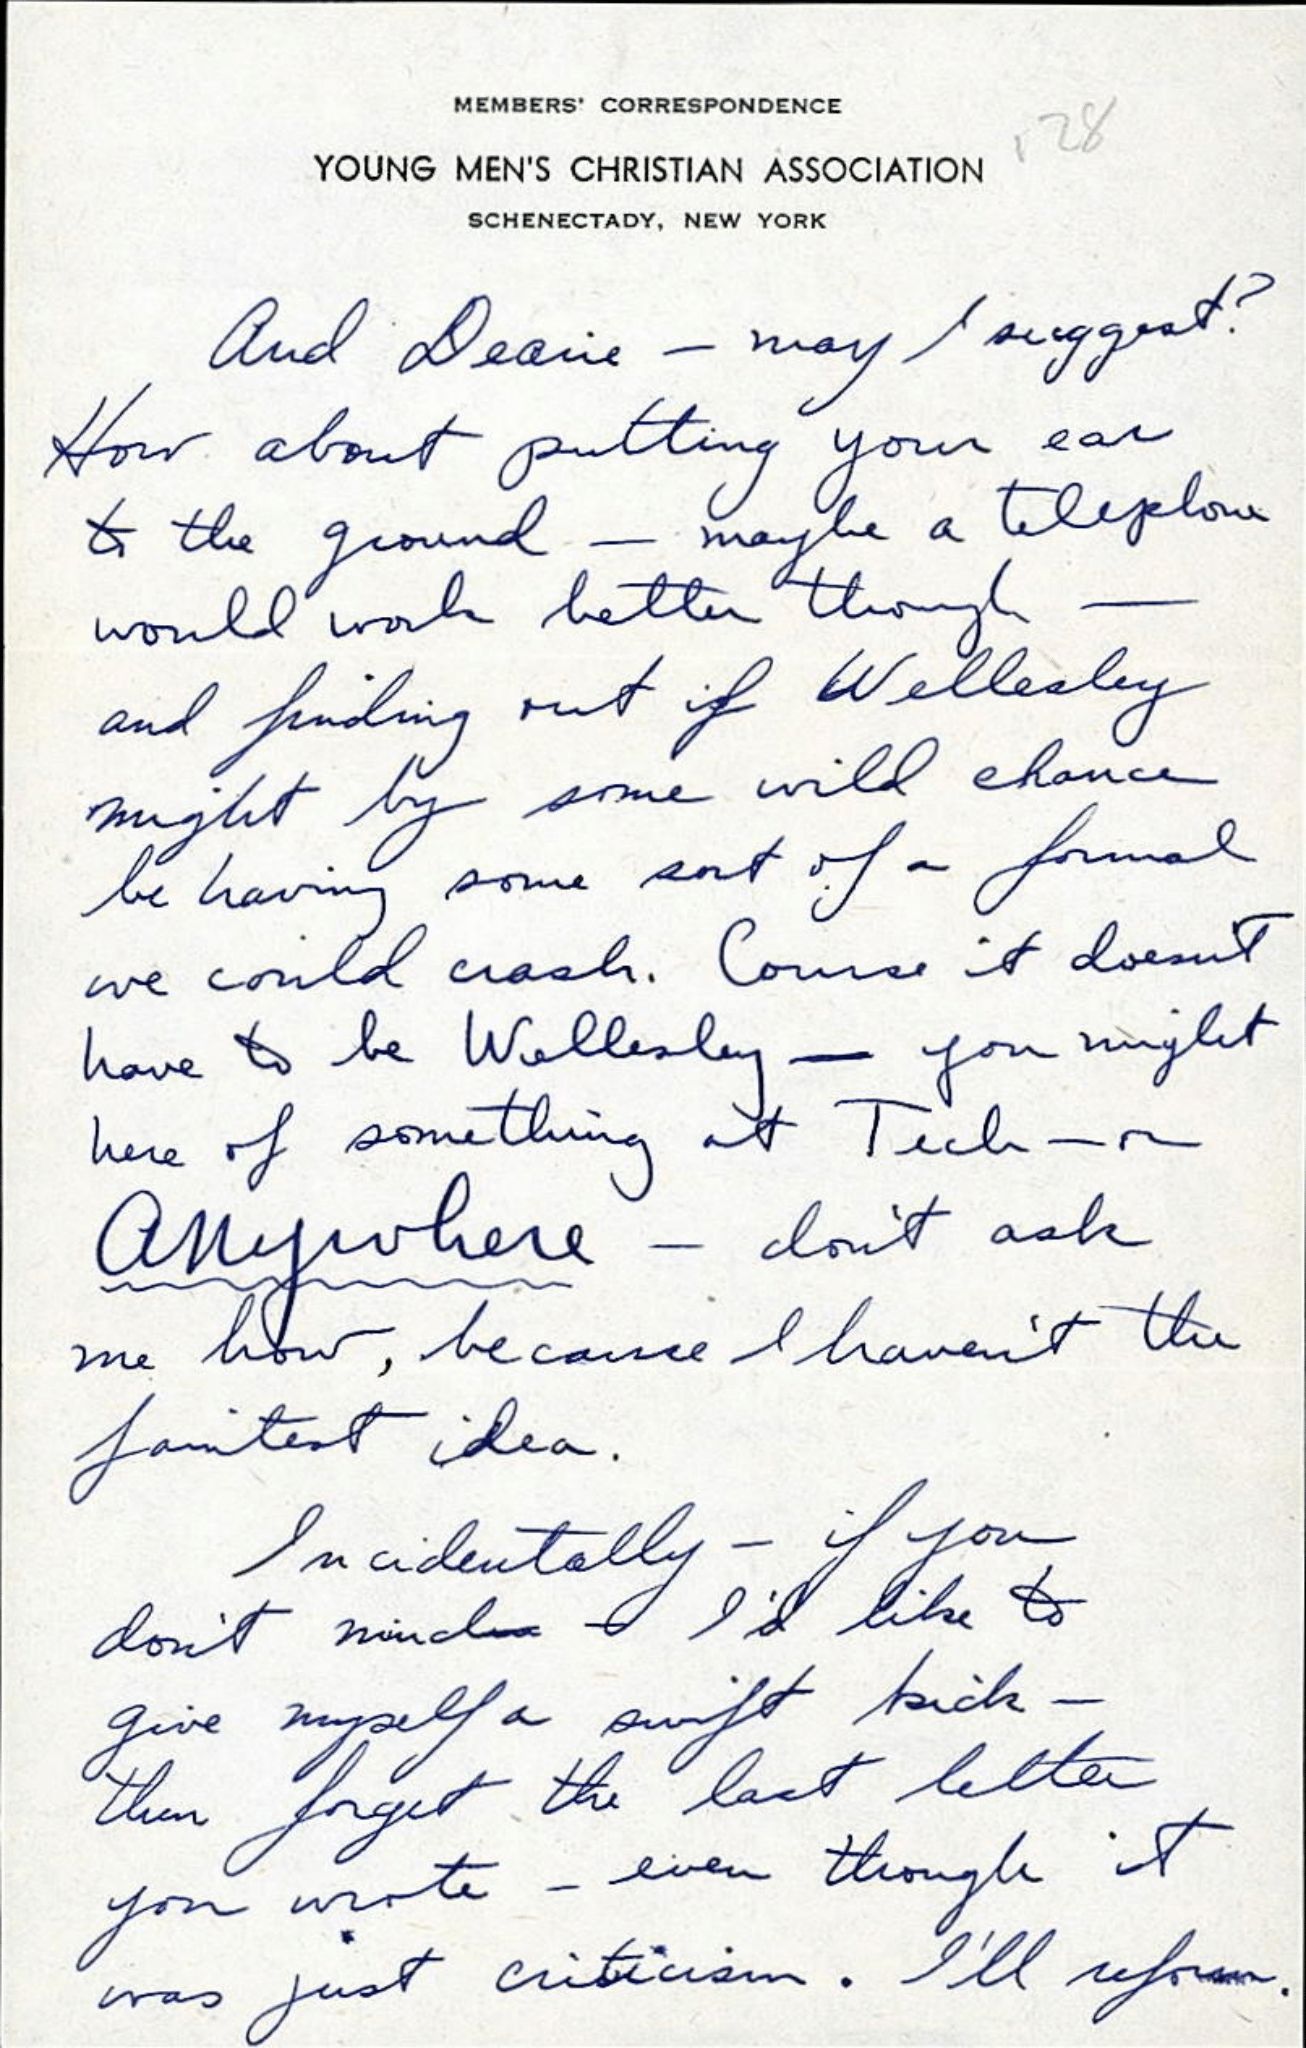 MEMBERS' CORRESPONDENCE
128
YOUNG MEN'S CHRISTIAN ASSOCIATION
SCHENECTADY, NEW YORK
And Dearie — may I suggest?
How about putting your ear
to the ground — maybe a telephone
would work better though —
and finding out if Wellesley
might by some wild chance
be having some sort of a formal
we could crash. Course it doesn't
have to be Wellesley — you might
here of something at Tech — or
Anywhere — don't ask
me how, because I haven't the
faintest idea.
Incidentally — if you
don't mind — I'd like to
give myself a swift kick —
then forget the last letter
you wrote — even though it
was just criticism. I'll reform.